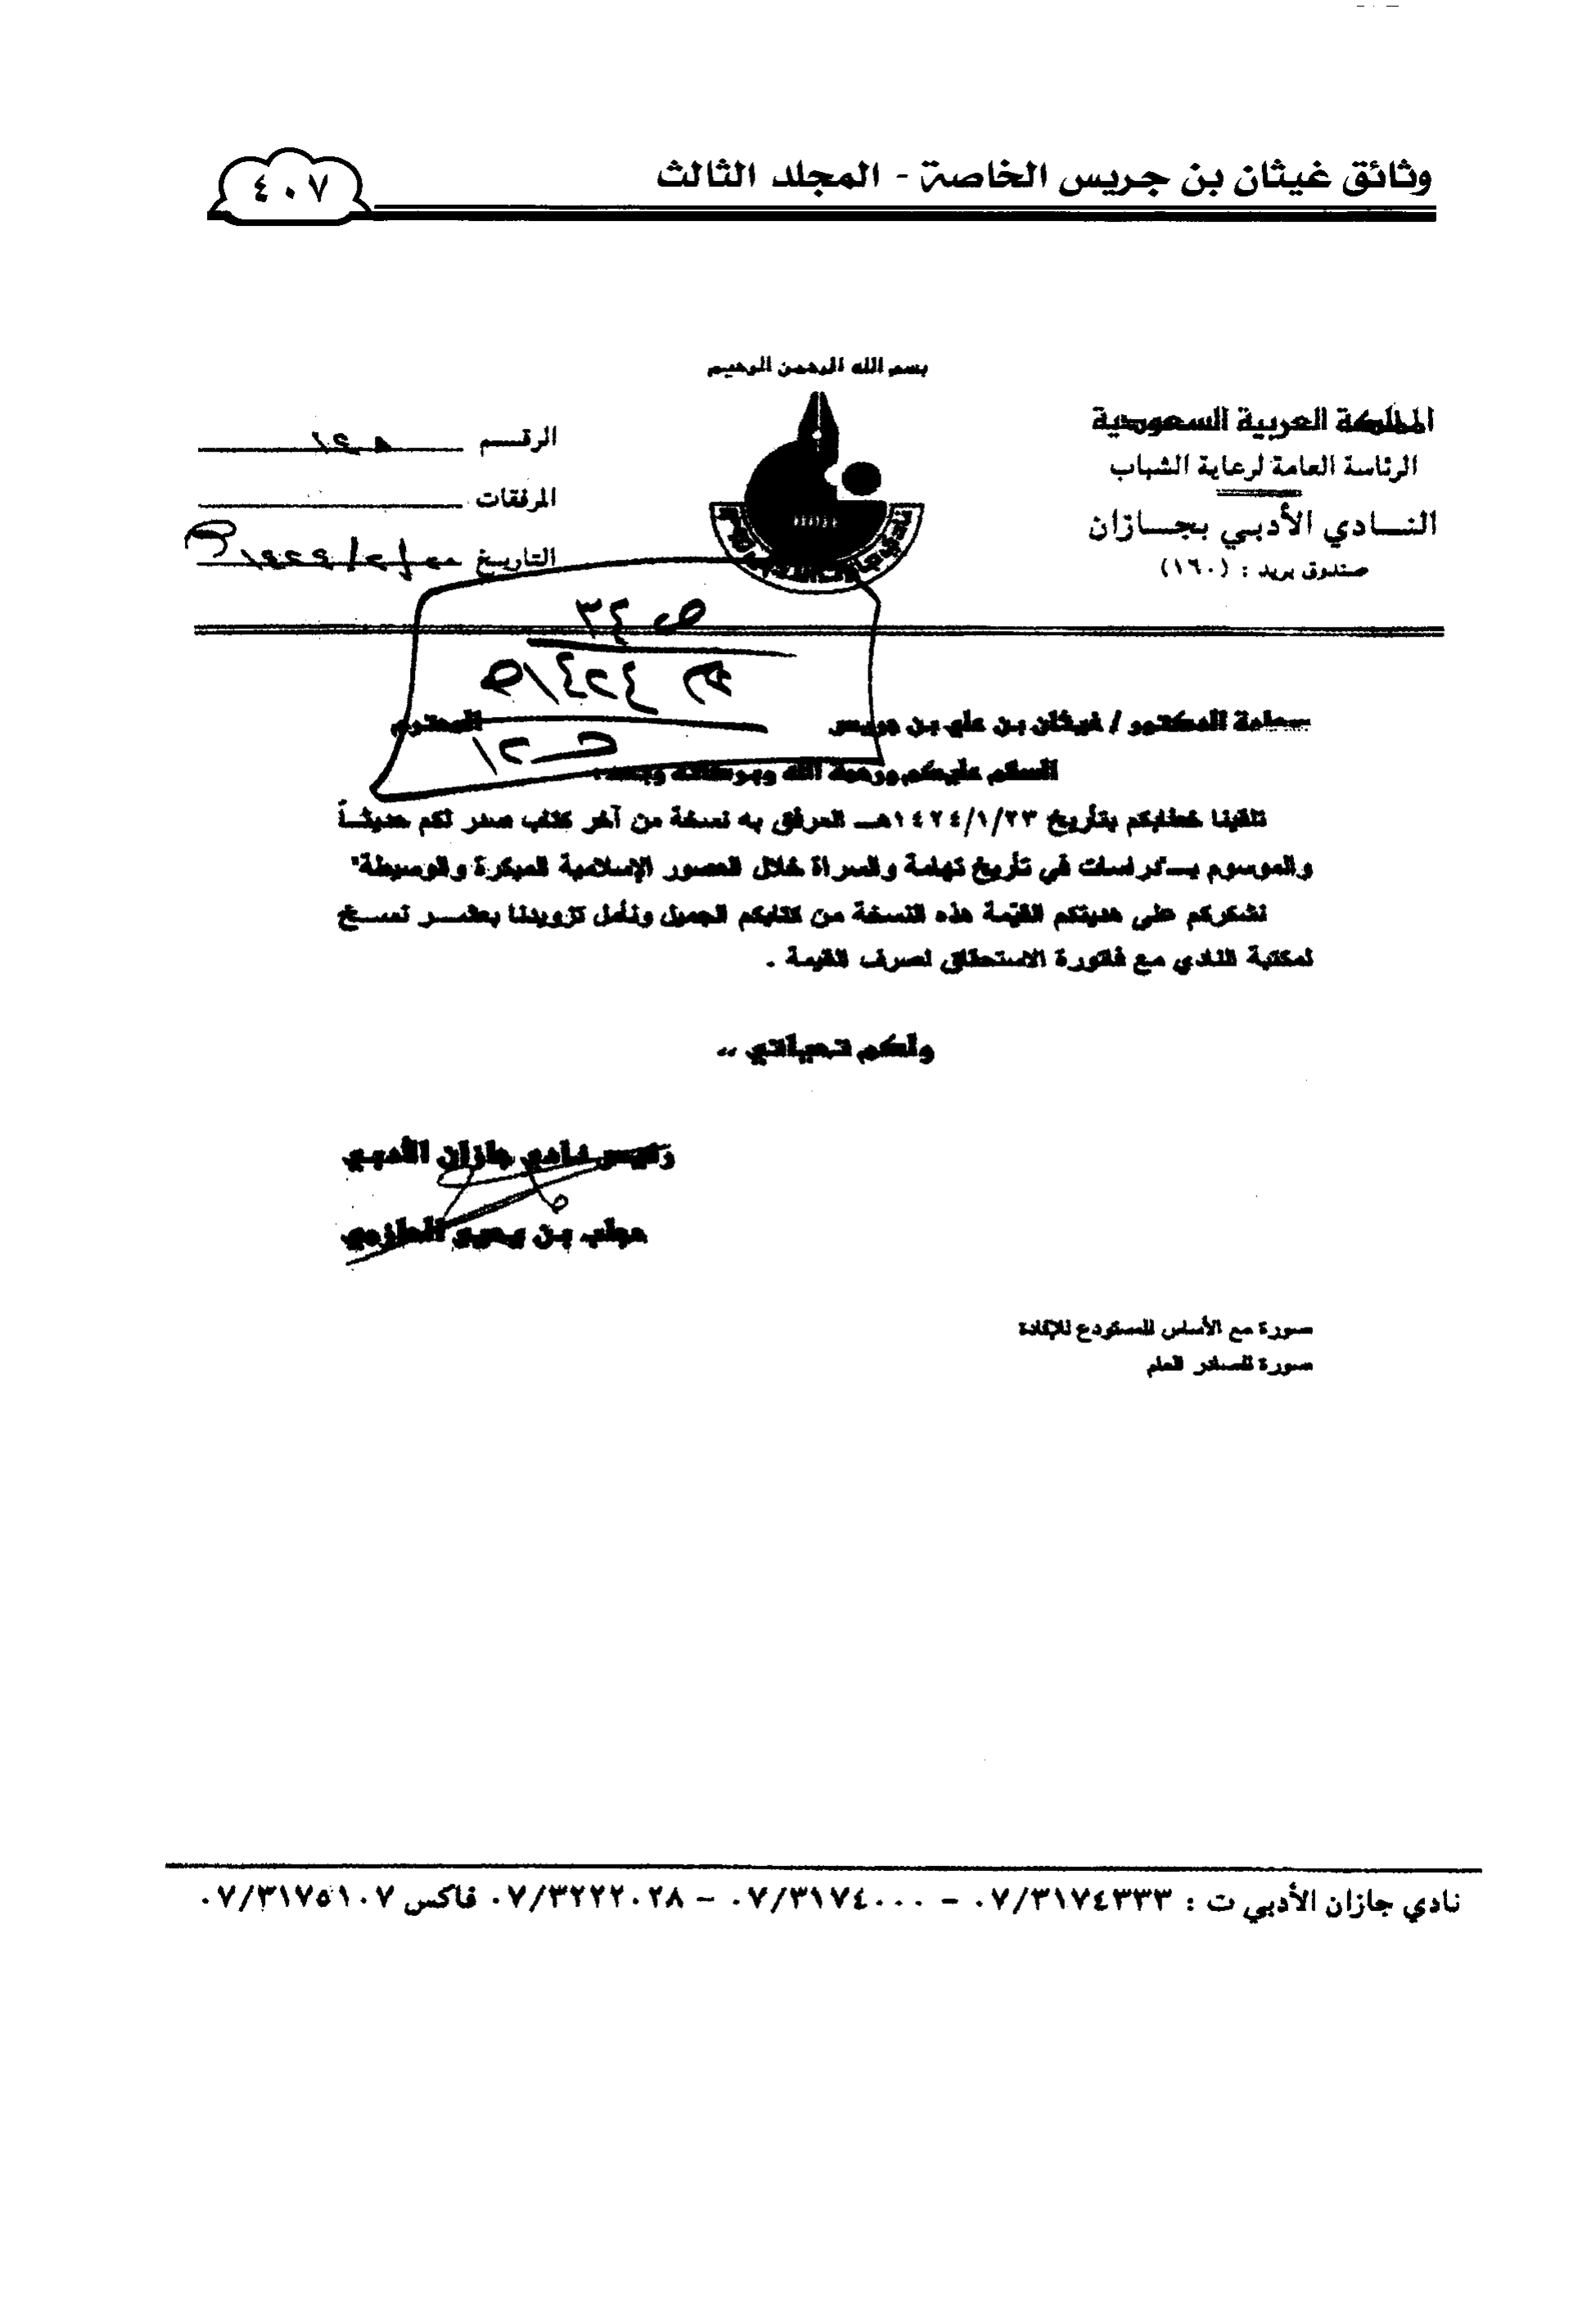 وثائق غيثان بن جريس الخاصة - المجلد الثالث
٤٠٧
بسم الله الرحمن الرحيم
المملكة العربية السعودية
الرئاسة العامة لرعاية الشباب
النــادي الأدبي بجــازان
صندوق بريد : (١٦٠)
الرقــم
المرفقات
التاريخ
ص ٣٤
سعادة الدكتور / غيثان بن علي بن جريس المحترم
السلام عليكم ورحمة الله وبركاته وبعد :
تلقينا خطابكم بتأريخ ١٤٢٤/١/٢٣هــ المرفق به نسخة من آخر كتاب صدر لكم حديثــاً
والموسوم بــ"دراسات في تأريخ تهامة والسراة خلال العصور الإسلامية المبكرة والوسيطة"
نشكركم على هديتكم القيّمة هذه النسخة من كتابكم الجميل ونأمل تزويدنا بعشــر نســخ
لمكتبة النادي مع فاتورة الاستحقاق لصرف القيمة .
ولكم تحياتي ..
رئيس نادي جازان الأدبي
حجاب بن يحيى الحازمي
صورة مع الأساس للمستودع للإفادة
صورة للصادر العام
نادي جازان الأدبي ت : ٠٧/٣١٧٤٣٣٣ – ٠٧/٣١٧٤٠٠٠ – ٠٧/٣٢٢٢٠٢٨ فاكس ٠٧/٣١٧٥١٠٧